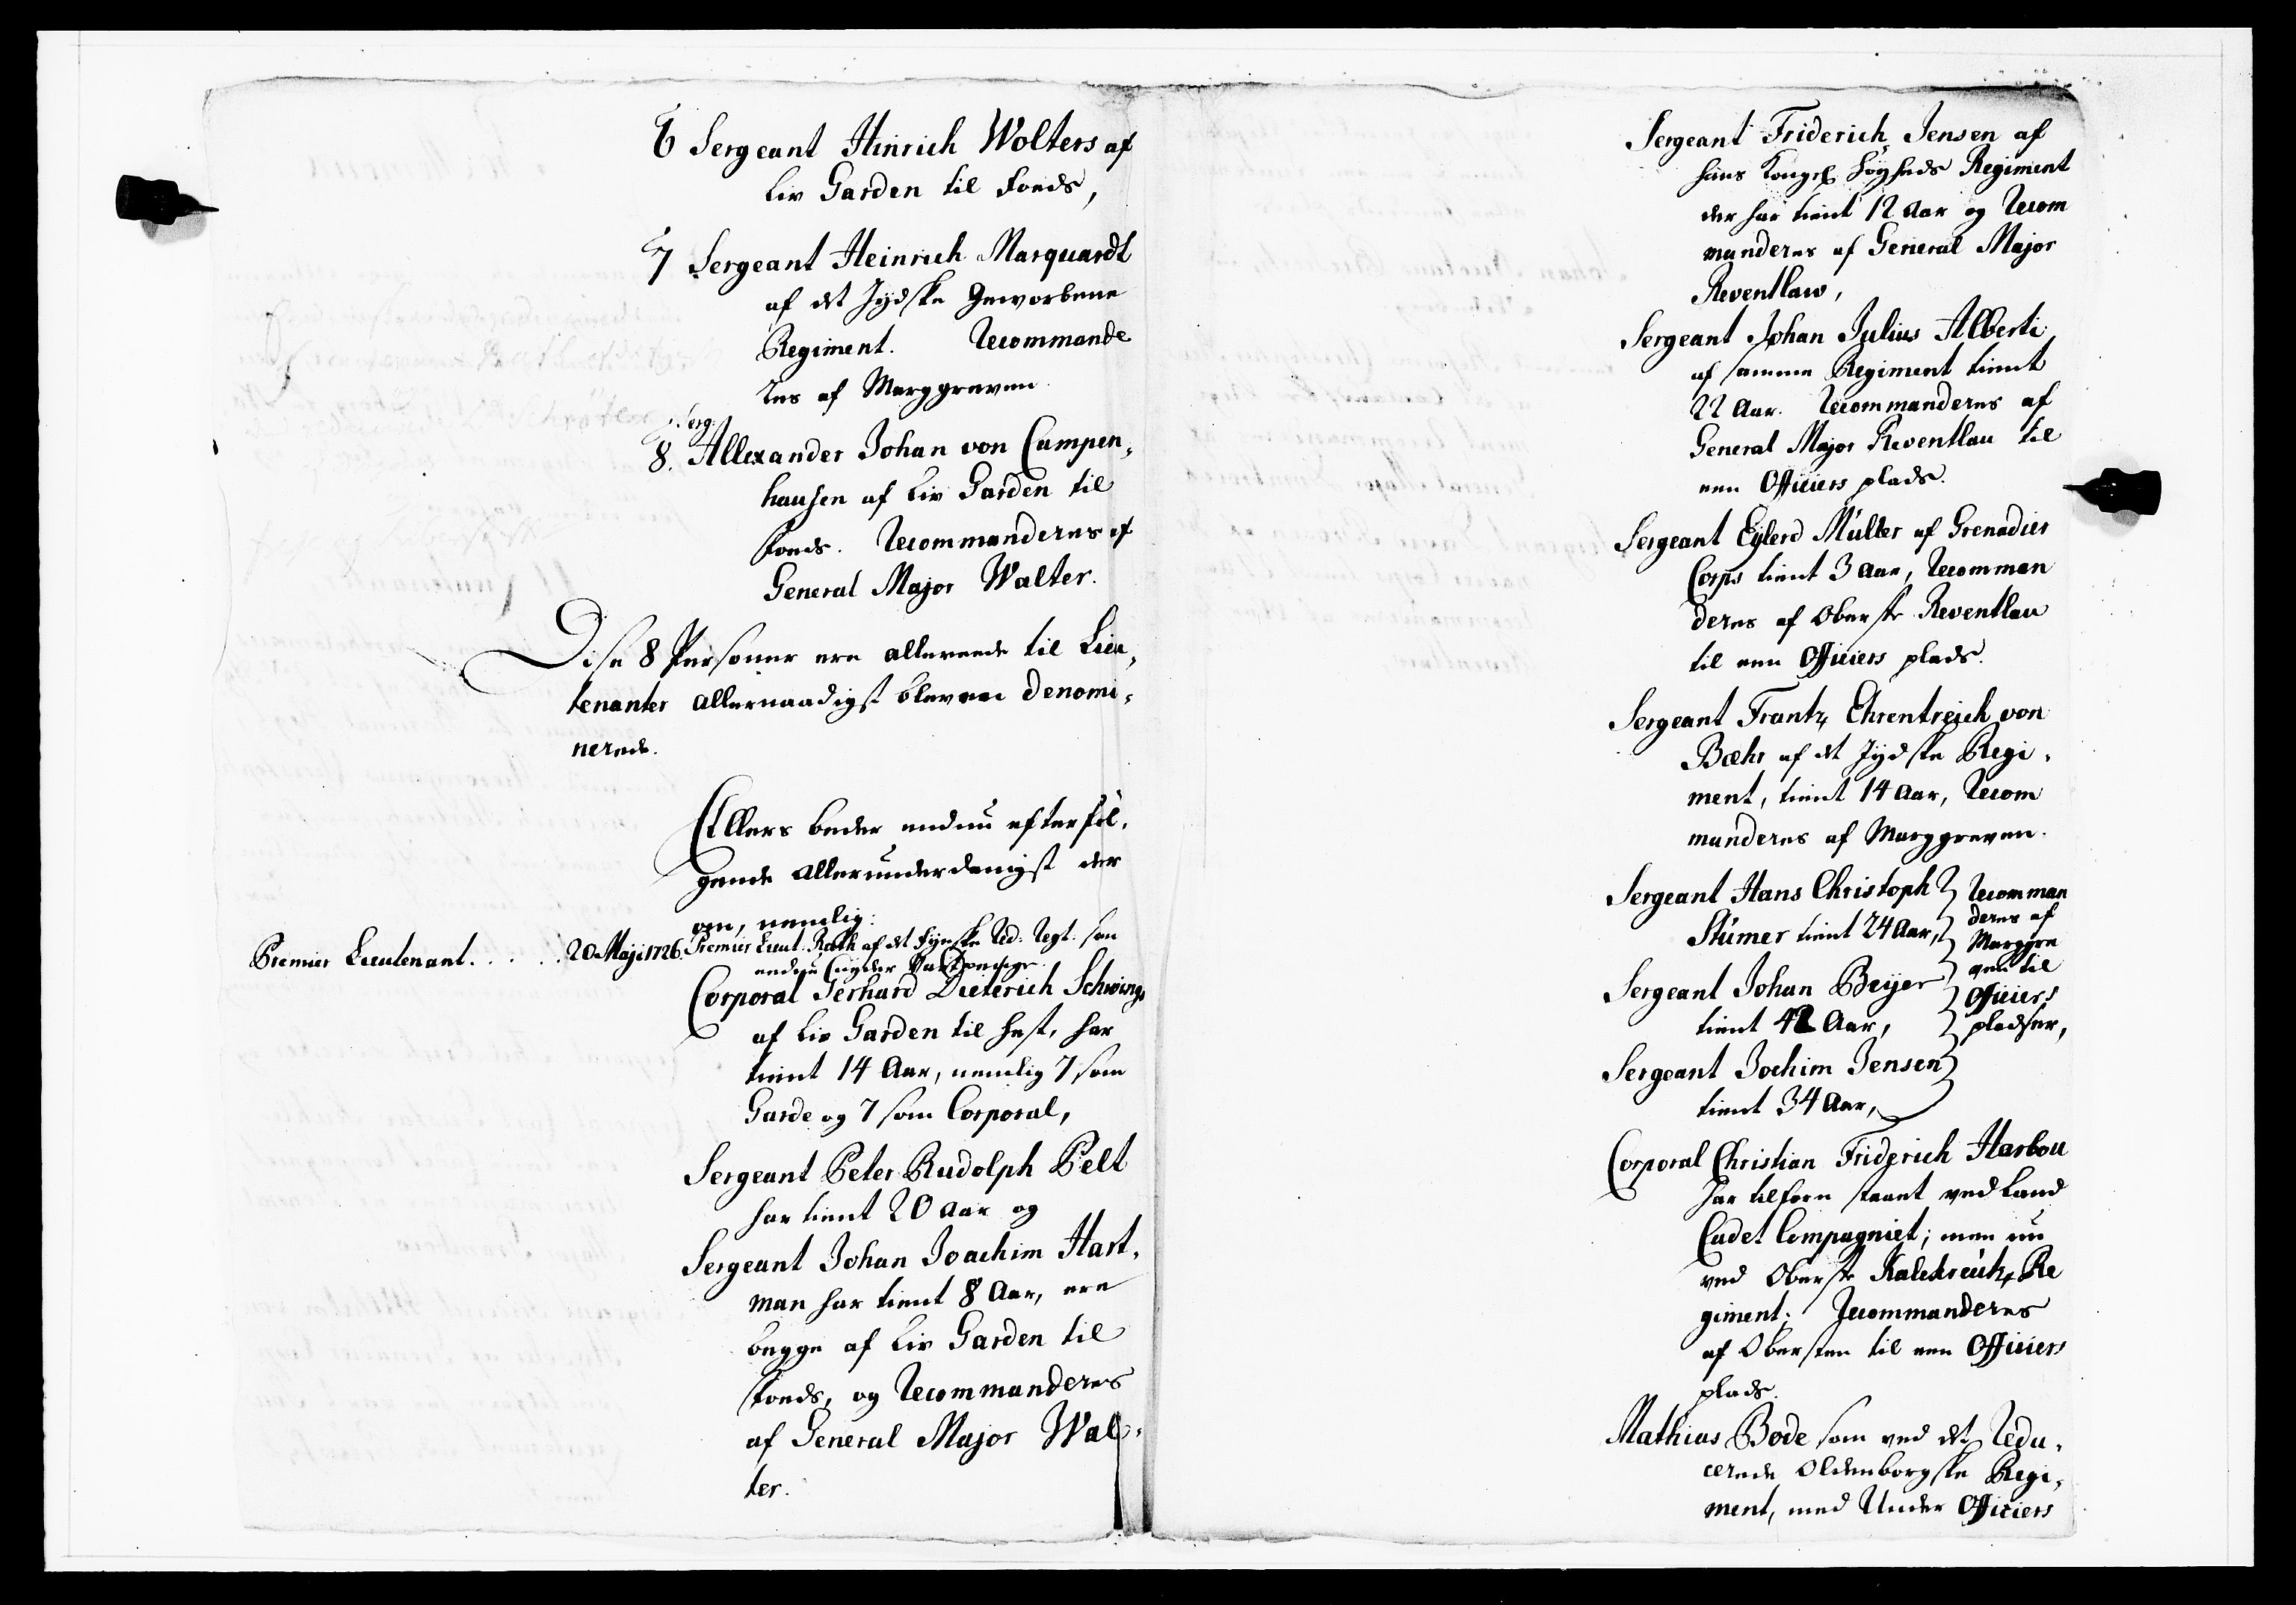 6 Sergeant Hinrich Wolters af
Liv Garden til Foeds,
7 Sergeant Heinrich Marquardt
af det Jydske Geworbene
Regiment. Recommande
res af Marggreven
Serg.
8. Allexander Johan von Campen,
hausen af Liv Garden til
Foeds. Recommanderes af
General Major Walter.
Disse 8 Personer ere allereede til Lieu,
tenanter allernaadigst blevne denomi,
nerede.
Ellers beder endnu efterføl,
gende allerunderdanigst der
om, nemlig:
Premier Lieutenant. . . . . . 20 Maji 1726. Premier Lieut. Rath af det Fynske Red. Regt. som
endnu nyder Vartpenge.
Corporal Gerhard Dieterich Schwings
af Liv Garden til Hest, har
tient 14 Aar, nemlig 7 som
Garde og 7 som Corporal,
Sergeant Peter Rudolph Pelt
har tient 20 Aar og
Sergeant Johan Joachim Hart,
man har tient 8 Aar, ere
begge af Liv Garden til
Foeds, og Recommanderes
af General Major Wal,
ter.
Sergeant Friderich Jensen af
Hans Kongel Høyheds Regiment
der har tient 12 Aar og Recom
manderes af General Major
Reventlaw,
Sergeant Johan Julius Alberti
af samme Regiment tient
22 Aar. Recommanderes af
General Major Reventlau til
een Officiers plads.
Sergeant Eylerd Müller af Grenadier
Corps tient 3 Aar, Recomman
deres af Oberste Reventlau
til een Officiers plads.
Sergeant Frantz Ehrentreich von
Bæhr af det Jydske Regi,
ment, tient 14 Aar, Recom
manderes af Marggreven.
Sergeant Hans Christoph
Stümer tient 24 Aar,
Sergeant Johan Beyer
tient 42 Aar,
Sergeant Jochim Jensen
tient 34 Aar,
Recomman
deres af
Marggre
ven til
Officiers
pladser,
Corporal Christian Friderich Harbou
har tilforn staaet ved Land
Cadet Compagniet; men nu
ved Oberste Kalckreütz Re
giment; Recommanderes
af Obersten til een Officiers
plads.
Mathias Bode som ved det Redu,
cerede Oldenborgske Regi,
ment, med Under Officiers